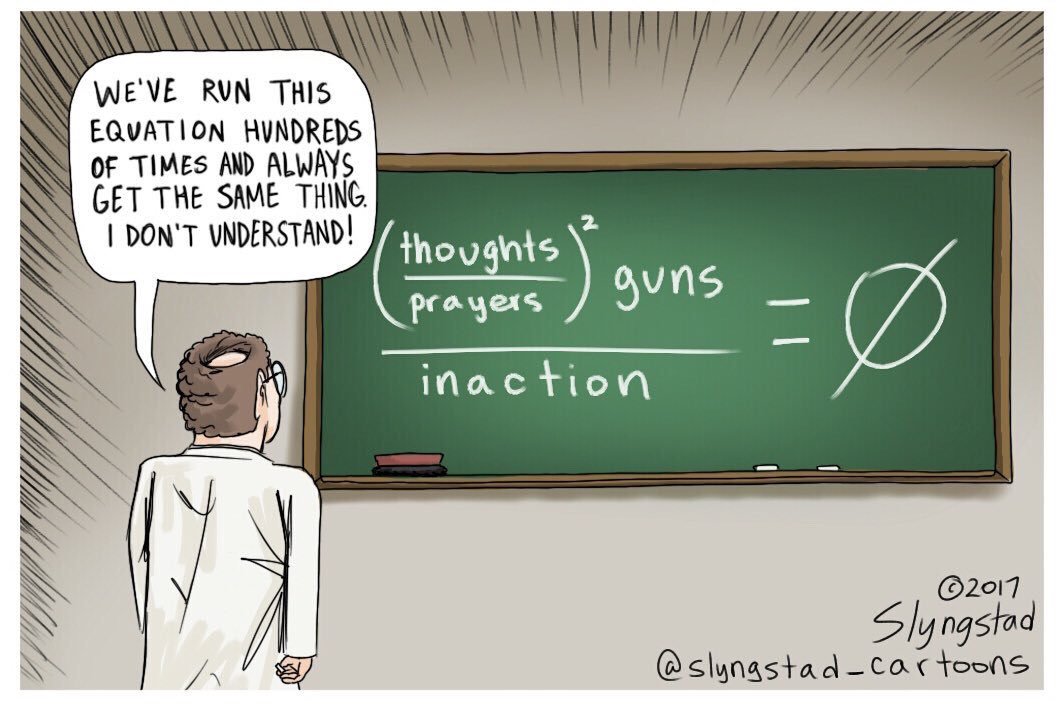 WE'VE RUN THIS
EQUATION HUNDREDS
OF TIMES AND ALWAYS
GET THE SAME THING.
I DON'T UNDERSTAND!
(thoughts
prayers)² guns
inaction
= ∅
©2017
Slyngstad
@slyngstad_cartoons